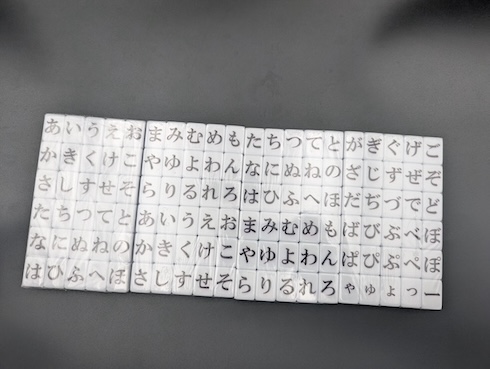 あいうえおまみむめもたちつてとがぎぐげご
かきくけこやゆよわんなにぬねのざじずぜぞ
さしすせそらりるれろはひふへほだぢづでど
たちつてとあいうえおまみむめもばびぶべぼ
なにぬねのかきくけこやゆよわんぱぴぷぺぽ
はひふへほさしすせそらりるれろゃゅょっー